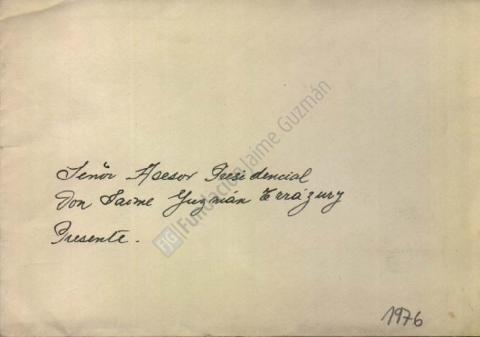 Señor Asesor Presidencial
Don Jaime Guzmán Erázury
Presente.
FJG Fundación Jaime Guzmán
1976